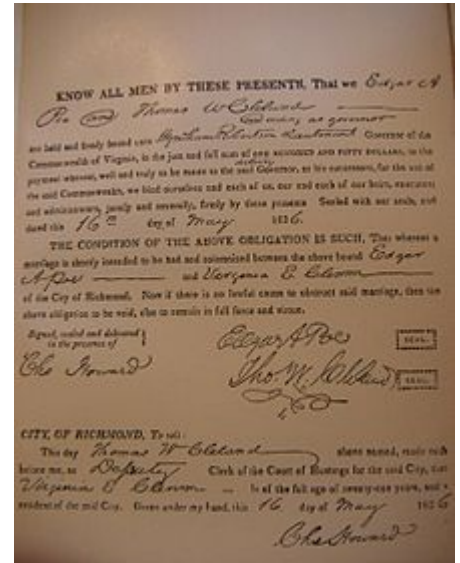 KNOW ALL MEN BY THESE PRESENTS, That we Edgar A
Poe and Thomas W Cleland
acting as governor
are held and firmly bound unto Wyndham Robertson Lieutenant Governor of the
Commonwealth of Virginia, in the just and full sum of ONE HUNDRED AND FIFTY DOLLARS, to the
payment whereof, well and truly to be made to the said Governor, or his successors, for the use of
the said Commonwealth, we bind ourselves and each of us, our and each of our heirs, executors
and administrators, jointly and severally, firmly by these presents. Sealed with our seals, and
dated this 16th day of May 1836.
THE CONDITION OF THE ABOVE OBLIGATION IS SUCH, That whereas a
marriage is shortly intended to be had and solemnized between the above bound Edgar
A Poe and Virginia E. Clemm
of the City of Richmond. Now if there is no lawful cause to obstruct said marriage, then the
above obligation to be void, else to remain in full force and virtue.
Signed, sealed and delivered
in the presence of
Cha Howard
Edgar A Poe SEAL.
Tho. W. Cleland SEAL.
CITY OF RICHMOND, To wit:
This day Thomas W Cleland above named, made oath
before me, as Deputy Clerk of the Court of Hustings for the said City, that
Virginia E Clemm is of the full age of twenty-one years, and a
resident of the said City. Given under my hand, this 16 day of May 1836
Cha Howard